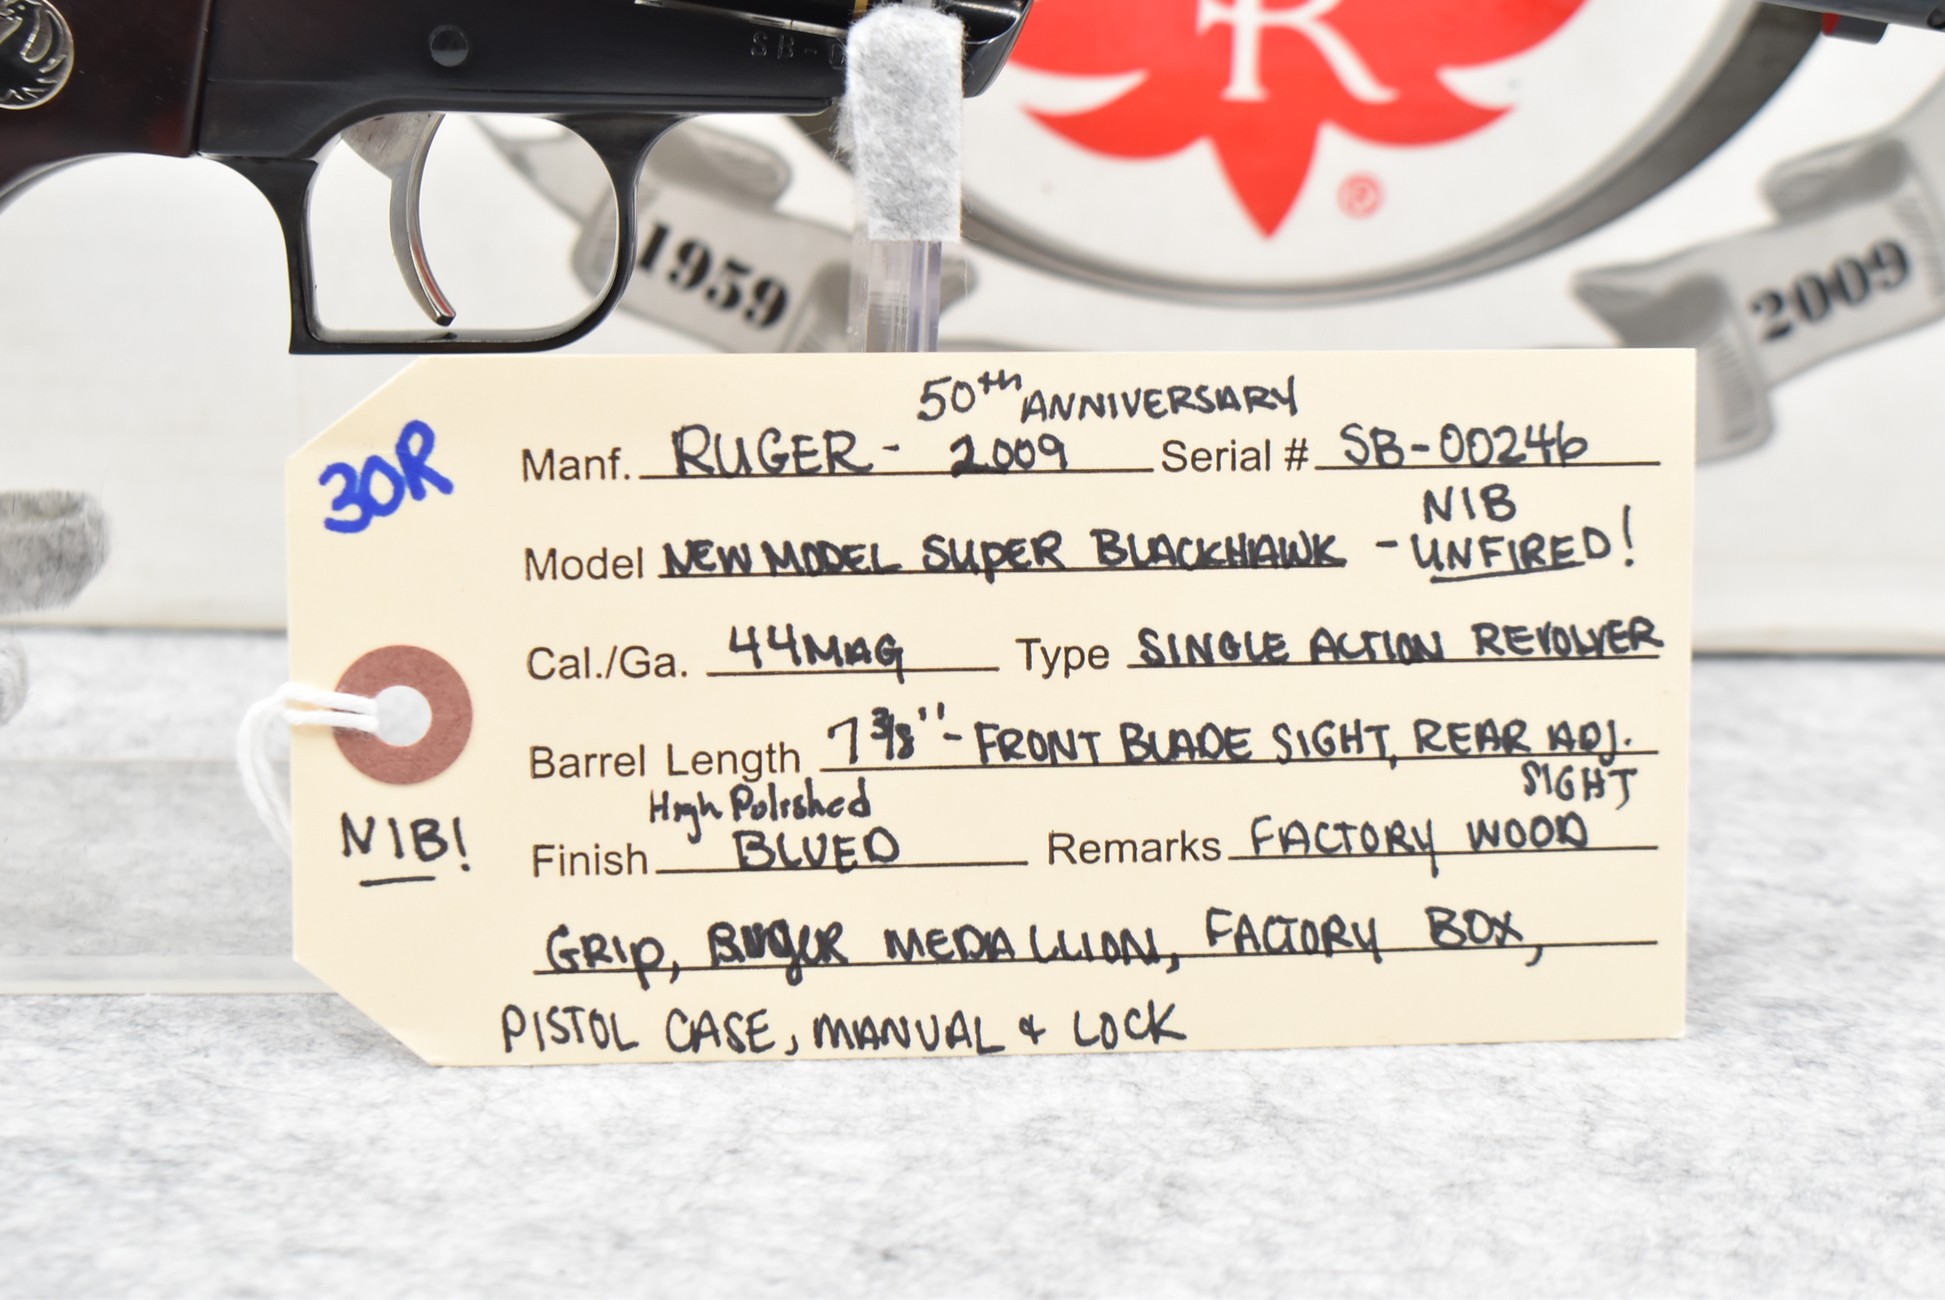 SB-0
R
®
1959
2009
30R
50th ANNIVERSARY
Manf. RUGER - 2009 Serial # SB-00246
NIB
Model NEW MODEL SUPER BLACKHAWK - UNFIRED!
Cal./Ga. 44MAG Type SINGLE ACTION REVOLVER
Barrel Length 7 3/8" - FRONT BLADE SIGHT, REAR ADJ.
SIGHT
High Polished
NIB!
Finish BLUED Remarks FACTORY WOOD
GRIP, RUGER MEDALLION, FACTORY BOX,
PISTOL CASE, MANUAL & LOCK